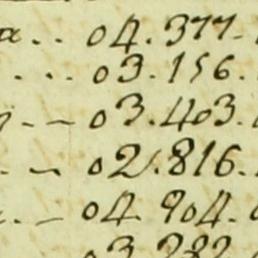 a.. 04.377.
... 03.156.
-- 03.403.
.- 02.816.
.- 04.904.
03.282.